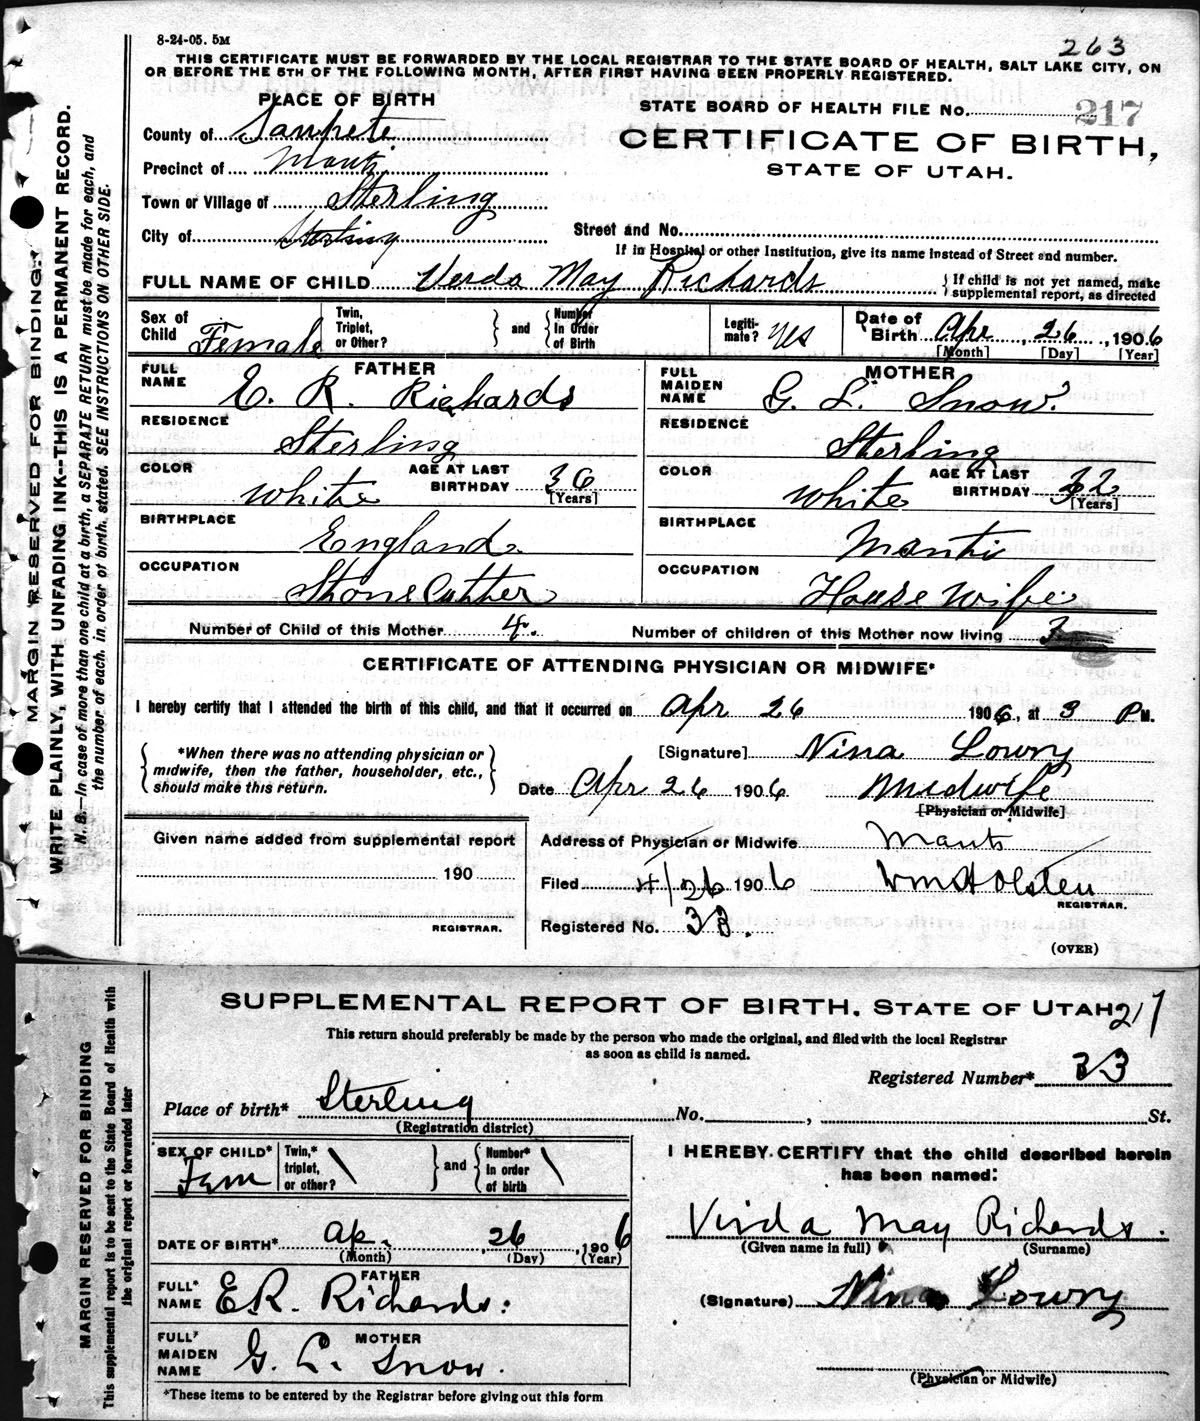 8-24-05. 5M
263
THIS CERTIFICATE MUST BE FORWARDED BY THE LOCAL REGISTRAR TO THE STATE BOARD OF HEALTH, SALT LAKE CITY, ON
OR BEFORE THE 5TH OF THE FOLLOWING MONTH, AFTER FIRST HAVING BEEN PROPERLY REGISTERED.
PLACE OF BIRTH
STATE BOARD OF HEALTH FILE No. 217
County of Sanpete
CERTIFICATE OF BIRTH,
STATE OF UTAH.
Precinct of Manti
Town or Village of Sterling
City of Sterling
Street and No.
If in Hospital or other Institution, give its name instead of Street and number.
FULL NAME OF CHILD Verda May Richards
If child is not yet named, make
supplemental report, as directed
Sex of Child Female
Twin, Triplet, or Other?
and
Number In Order of Birth
Legiti- mate? Yes
Date of Birth Apr 26, 1906
[Month] [Day] [Year]
FATHER
FULL NAME E. R. Richards
MOTHER
FULL MAIDEN NAME G. L. Snow.
RESIDENCE Sterling
RESIDENCE Sterling
COLOR White
AGE AT LAST BIRTHDAY 36 [Years]
COLOR White
AGE AT LAST BIRTHDAY 32 [Years]
BIRTHPLACE England
BIRTHPLACE Manti
OCCUPATION Stone Cutter
OCCUPATION House Wife
Number of Child of this Mother 4.
Number of children of this Mother now living 3
CERTIFICATE OF ATTENDING PHYSICIAN OR MIDWIFE*
I hereby certify that I attended the birth of this child, and that it occurred on Apr 26 1906, at 3 P M.
*When there was no attending physician or
midwife, then the father, householder, etc.,
should make this return.
[Signature] Nina Lowry
Date Apr 26 1906 Midwife
[Physician or Midwife]
Given name added from supplemental report
190
REGISTRAR.
Address of Physician or Midwife Manti
Filed 4/26 1906 Wm H Olsten
REGISTRAR.
Registered No. 33.
(OVER)
MARGIN RESERVED FOR BINDING.
WRITE PLAINLY, WITH UNFADING INK--THIS IS A PERMANENT RECORD.
N. B.—In case of more than one child at a birth, a SEPARATE RETURN must be made for each, and
the number of each, in order of birth, stated. SEE INSTRUCTIONS ON OTHER SIDE.
SUPPLEMENTAL REPORT OF BIRTH, STATE OF UTAH 217
This return should preferably be made by the person who made the original, and filed with the local Registrar
as soon as child is named.
Registered Number* 33
Place of birth* Sterling No. , St.
(Registration district)
SEX OF CHILD* Fem
Twin,* triplet, or other? \
and
Number* in order of birth \
I HEREBY CERTIFY that the child described herein
has been named:
DATE OF BIRTH* Ap. 26, 1906
(Month) (Day) (Year)
Virda May Richards.
(Given name in full) (Surname)
FATHER
FULL* NAME E R. Richards.
(Signature) Nina Lowry
MOTHER
FULL* MAIDEN NAME G. L. Snow.
(Physician or Midwife)
*These items to be entered by the Registrar before giving out this form
MARGIN RESERVED FOR BINDING
This supplemental report to be sent to the State Board of Health with
the original report or forwarded later